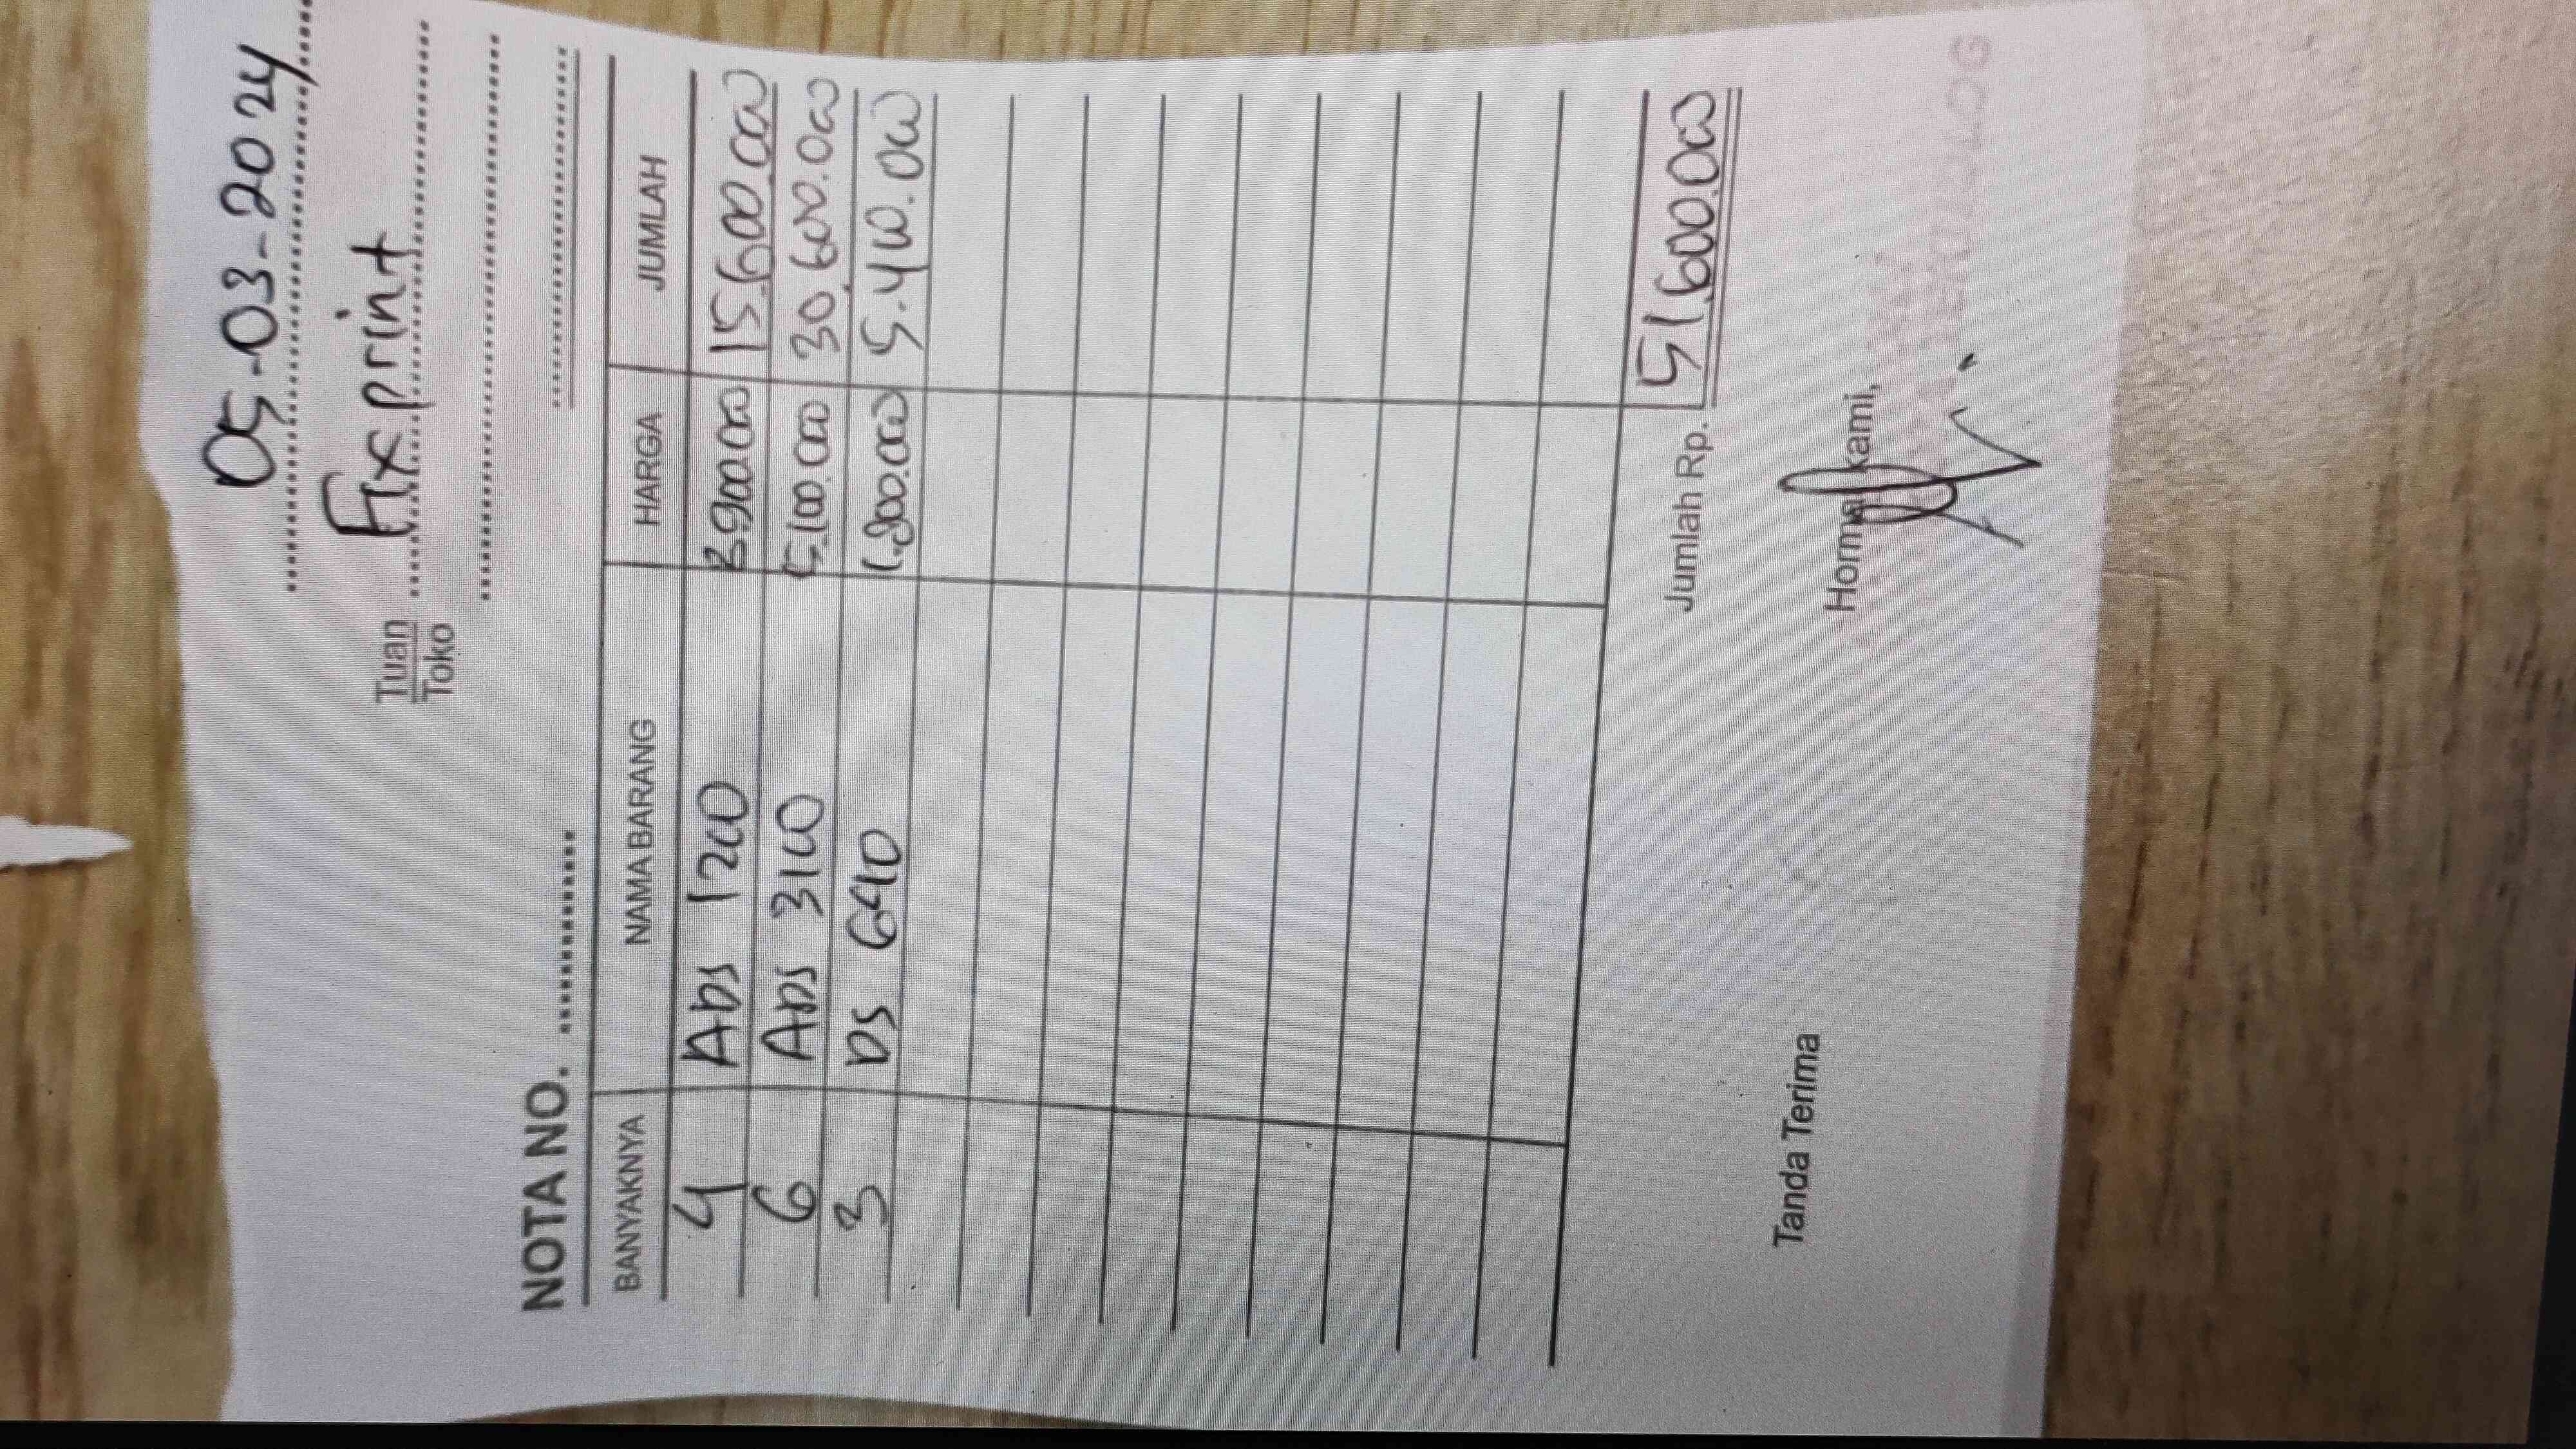 05-03-2024
Tuan Fixprint
Toko
NOTA NO.
BANYAKNYA NAMA BARANG HARGA JUMLAH
4 ADS 1200 3.900.000 15.600.000
6 ADS 3100 5.100.000 30.600.000
3 DS 640 1.800.000 5.400.000
Jumlah Rp. 51.600.000
Tanda Terima Hormat kami,